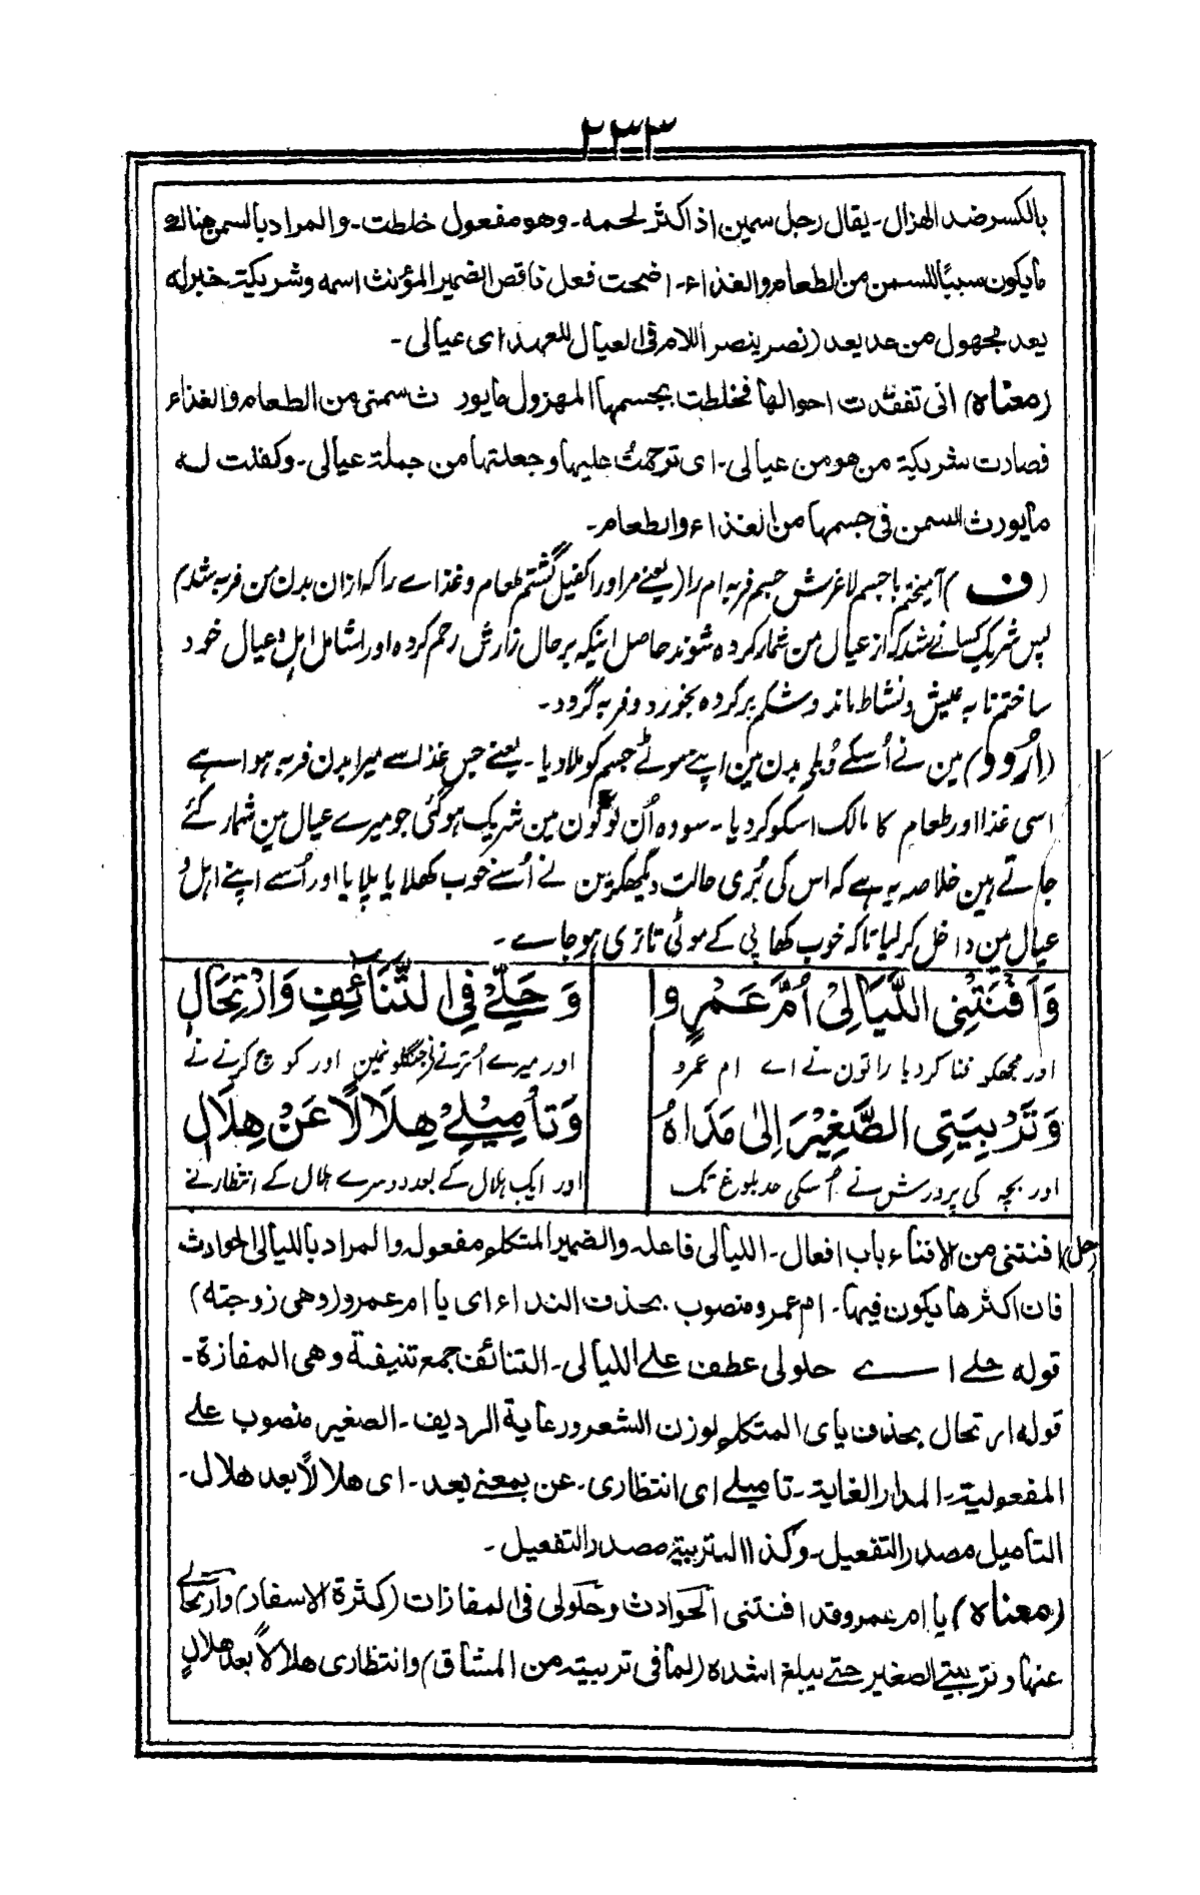 ۲۳۳
بالكسر ضد الهزال۔ يقال رجل سمين اذا كثر لحمه۔ وهو مفعول خلطت۔ والمراد بالسمن هنا له
ما يكون سببًا للسمن من الطعام والغذاء۔ اضحت فعل ناقص الضمير المؤنث اسمه وشريكة خبر له
يعد مجهول من عد يعد (نصر ينصر) اللام فى العيال للعهد اى عيالى۔
(معناه) انى تفقدت احوالها فخلطت بجسمها المهزول ما يورث سمنى من الطعام والغذاء
فصارت شريكة من هو من عيالى۔ اى ترحمتُ عليها وجعلتها من جملة عيالى۔ وكفلت له
ما يورث السمن فى جسمها من الغذاء والطعام۔
(ف) آمیختم با جسم لاغرش جسم فربہ ام را (یعنے مر او را کفیل گشتم طعام و غذاے را کہ ازان بدن من فربہ شدم
پس شریک کسانے شد کہ از عیال من شمار کردہ شوند حاصل اینکہ بر حال زارش رحم کردہ او را شامل اہل و عیال خود
ساختم تا بہ عیش و نشاط ماند و شکم پر کردہ بخورد و فربہ گردد۔
(اُردو) مین نے اُسکے دُبلے بدن مین اپنے موٹے جسم کو ملا دیا۔ یعنے جس غذا سے میرا بدن فربہ ہوا ہے
اسی غذا اور طعام کا مالک اسکو کر دیا۔ سو وہ اُن لوگون مین شریک ہو گئی جو میرے عیال مین شمار کئے
جاتے ہین خلاصہ یہ ہے کہ اس کی بُری حالت دیکھکر مین نے اُسے خوب کھلایا پلایا اور اُسے اپنے اہل و
عیال مین داخل کر لیا تا کہ خوب کھا پی کے موٹی تازی ہو جاے۔
وَاَفْنَتْنِى اللَّيَالِىْ اُمَّ عَمْرٍو وَحَلِّىْ فِى التَّنَائِفِ وَارْتِحَالِ
اور مجھکو فنا کر دیا راتون نے اے ام عمرو اور میرے اُترنے نے جنگلونمین اور کوچ کرنے نے
وَتَرْبِيَتِى الصَّغِيْرَ اِلىٰ مَدَاهُ وَتَأْمِيْلِىْ هِلَالًا عَنْ هِلَالِ
اور بچہ کی پرورش نے اُسکی حد بلوغ تک اور ایک ہلال کے بعد دوسرے ہلال کے انتظار نے
(حل) افنتنى من الافناء باب افعال۔ الليالى فاعله والضمير المتكلم مفعول والمراد بالليالى الحوادث
فان اكثرها يكون فيها۔ ام عمرو منصوب بحذف النداء اى يا ام عمرو (وهى زوجته)
قوله حلى اے حلولى عطف على الليالى۔ التنائف جمع تنيفة وهى المفازة۔
قوله ارتحال بحذف ياى المتكلم لوزن الشعر ورعاية الرديف۔ الصغير منصوب على
المفعولية۔ المدار الغاية۔ تاميلى اى انتظارى۔ عن بمعنى بعد۔ اى هلالًا بعد هلال۔
التاميل مصدر التفعيل۔ وكذا التربية مصدر التفعيل۔
(معناه) يا ام عمرو قد افنتنى الحوادث وحلولى فى المفازات (كثرة الاسفار) وارتحالى
عنها وتربيتى الصغير حتى يبلغ اشده (لما فى تربيته من المشاق) وانتظارى هلالًا بعد هلالٍ